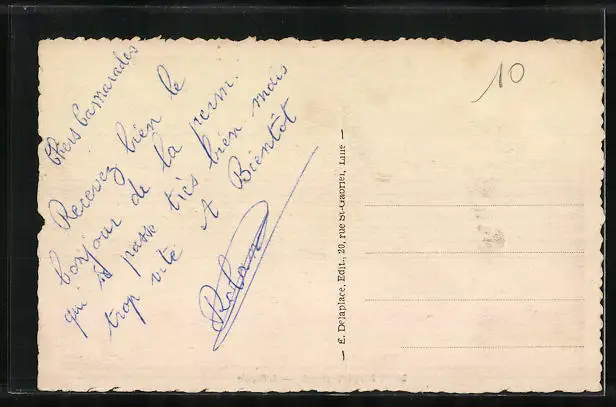 Chers Camarades
Recevez bien le
bonjour de la perm.
qui se passe très bien mais
trop vite A Bientôt
Roland
10
— E. Delaplace, Edit., 20, rue St-Gabriel, Lille —